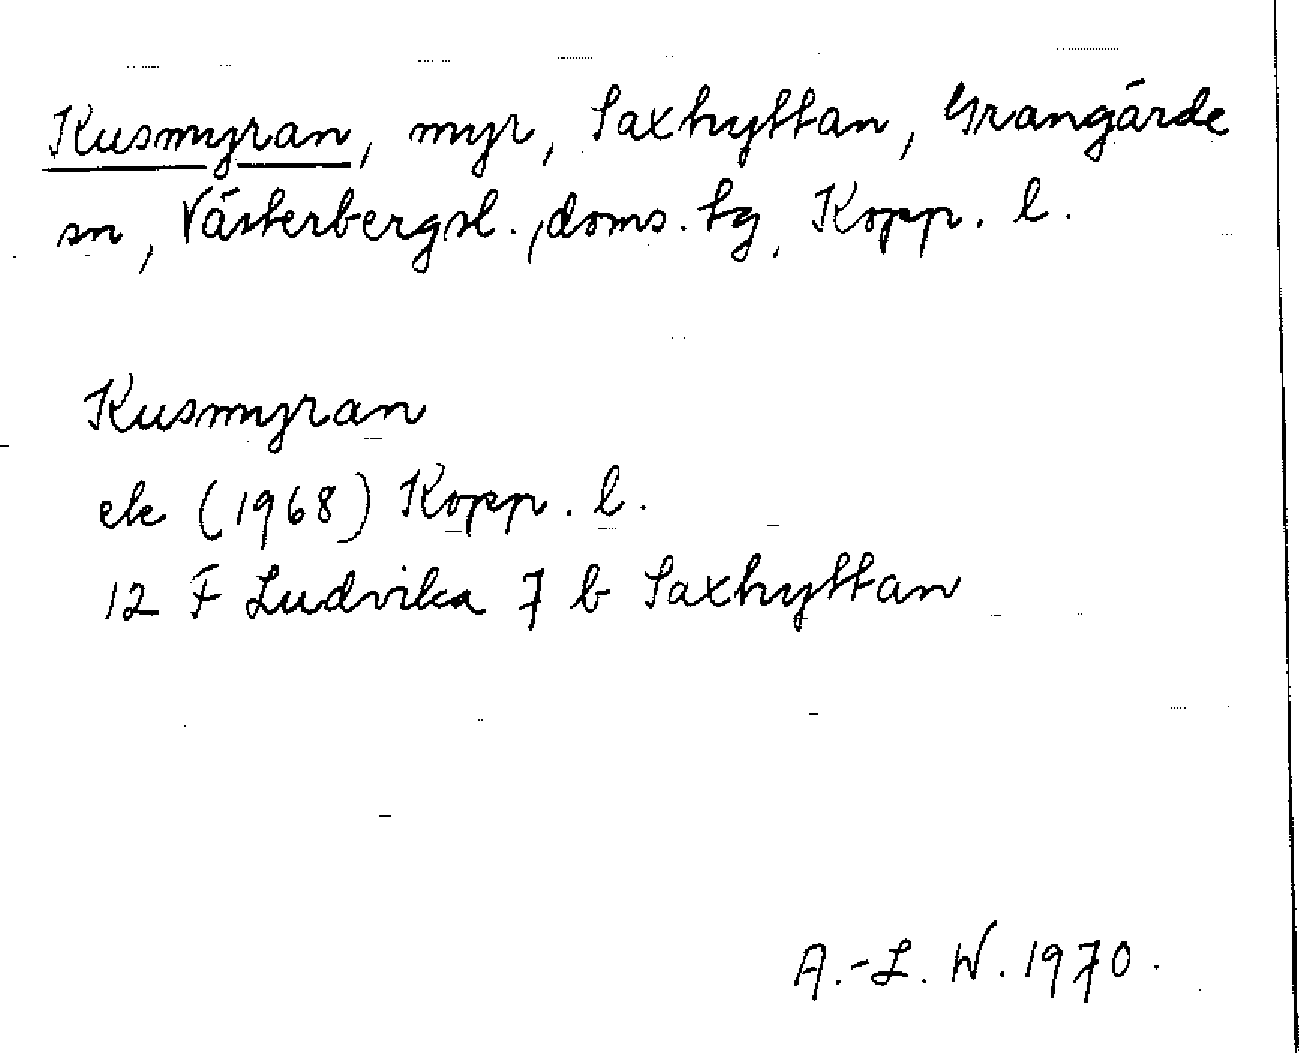 Kusmyran, myr, Saxhyttan, Grangärde
sn, Västerbergsl., doms. tg, Kopp. l.
Kusmyran
ek (1968) Kopp. l.
12 F Ludvika 7 b Saxhyttan
A.-L. W. 1970.